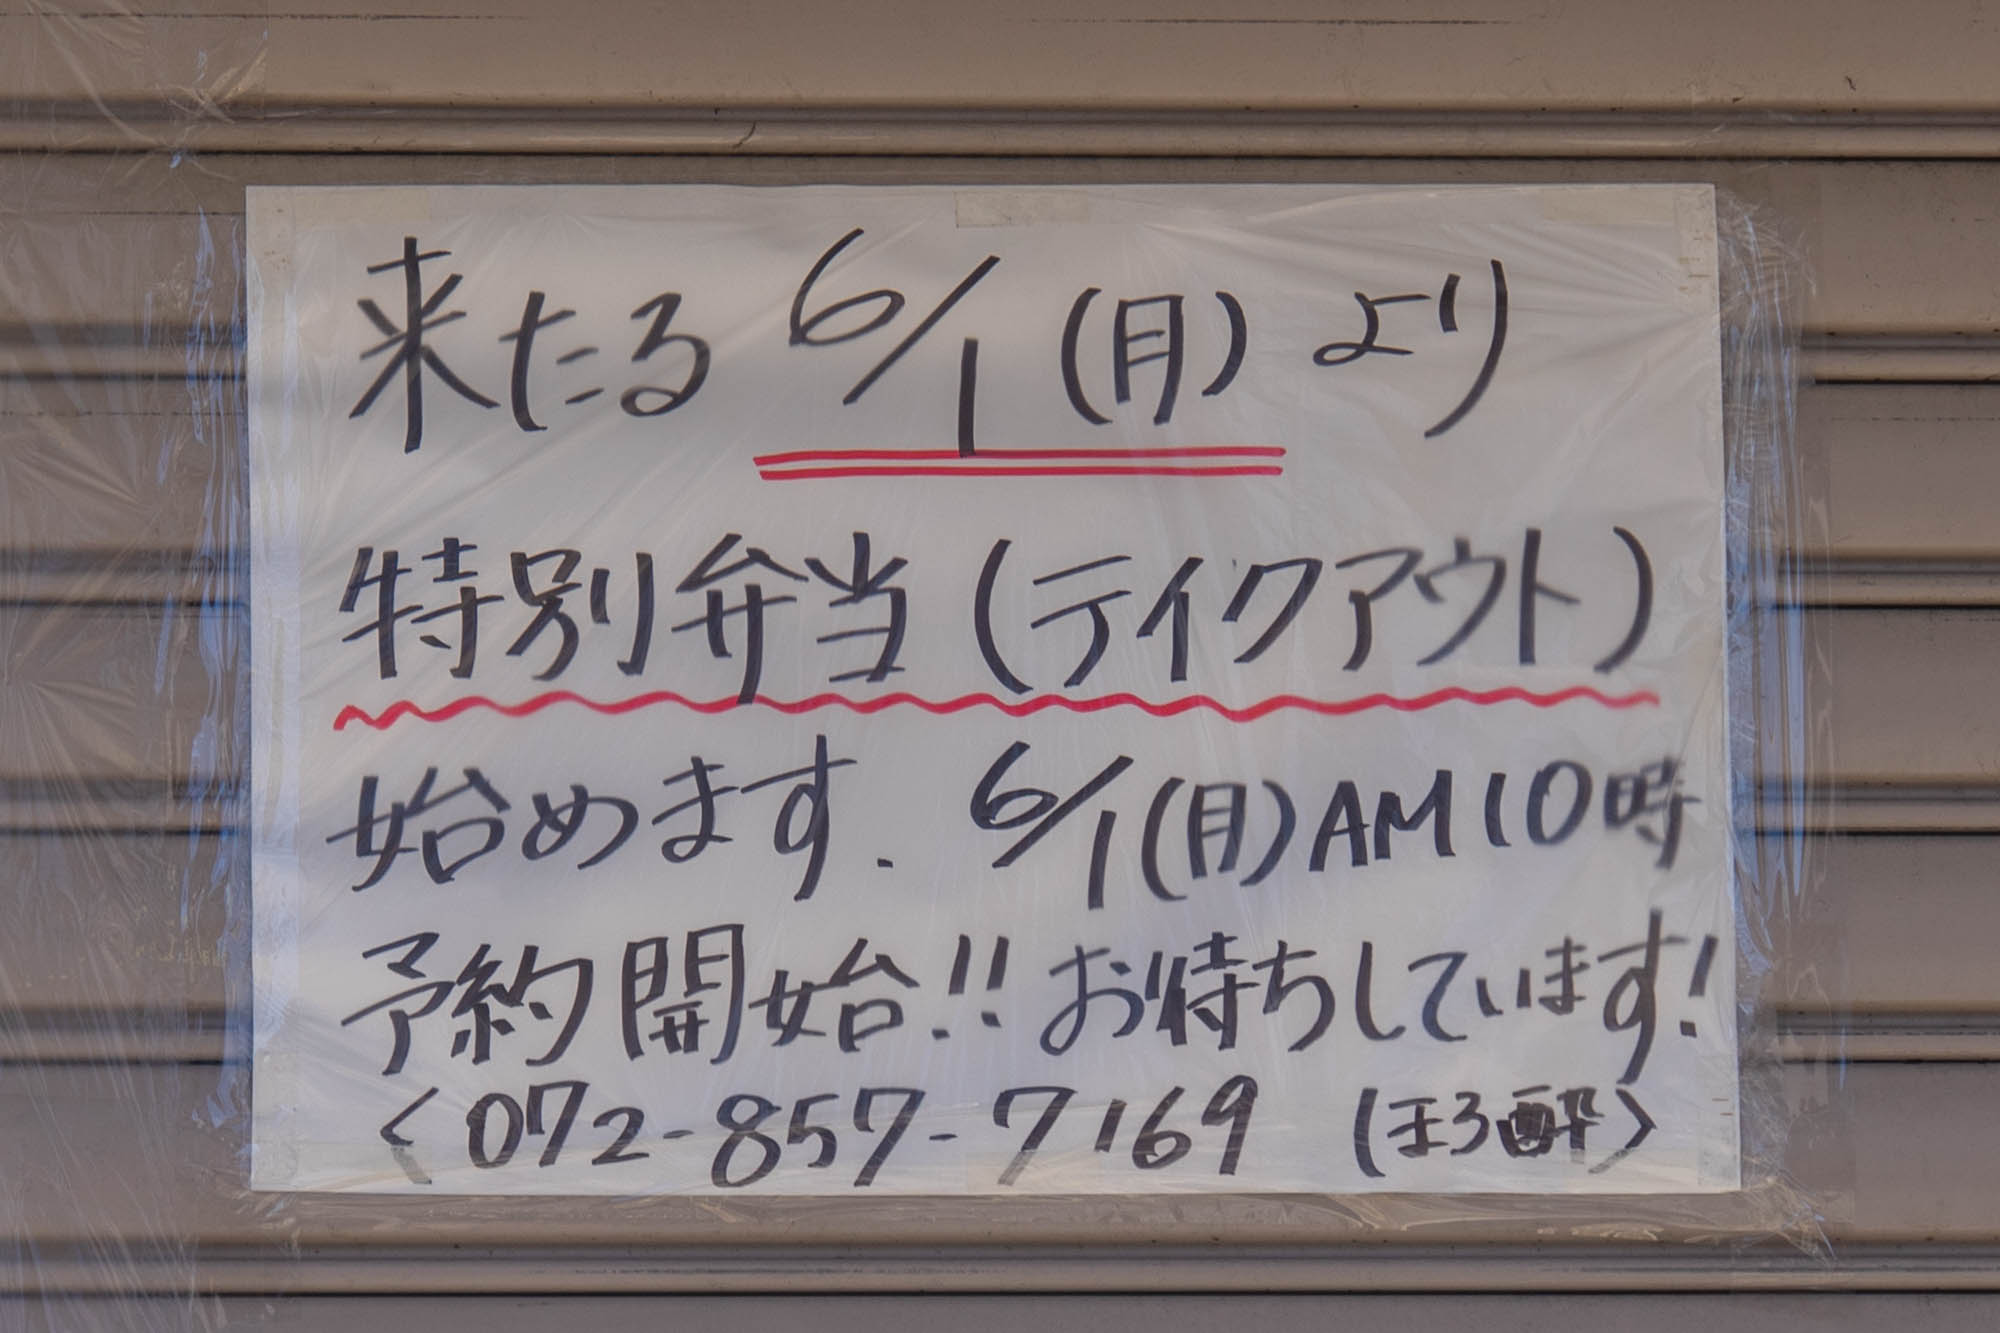 来たる 6/1(月)より
特別弁当(テイクアウト)
始めます. 6/1(月)AM10時
予約開始!! お待ちしています!
<072-857-7169 (ほろ酔>